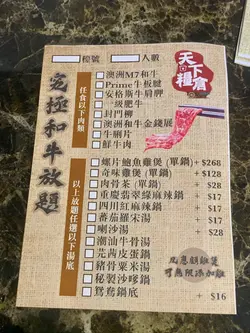 檯號 人數
天下糧倉
究極和牛放題
任食以下肉類
澳洲M7和牛
Prime牛板腱
安格斯牛肩胛
一級肥牛
封門柳
澳洲和牛金錢展
牛脷片
鮮牛肉
以上放題任選以下湯底
螺片鮑魚雞煲 (單鍋) + $268
奇味雞煲 (單鍋) + $128
肉骨茶 (單鍋) + $28
重慶翡翠緣麻辣鍋 + $17
四川紅麻辣鍋 + $17
蕃茄羅宋湯 + $17
喇沙湯 + $28
潮汕牛骨湯
芫茜皮蛋鍋
豬骨粟米湯
秘製沙嗲鍋
鴛鴦鍋底 + $16
凡惠顧雞煲
可無限添加雞